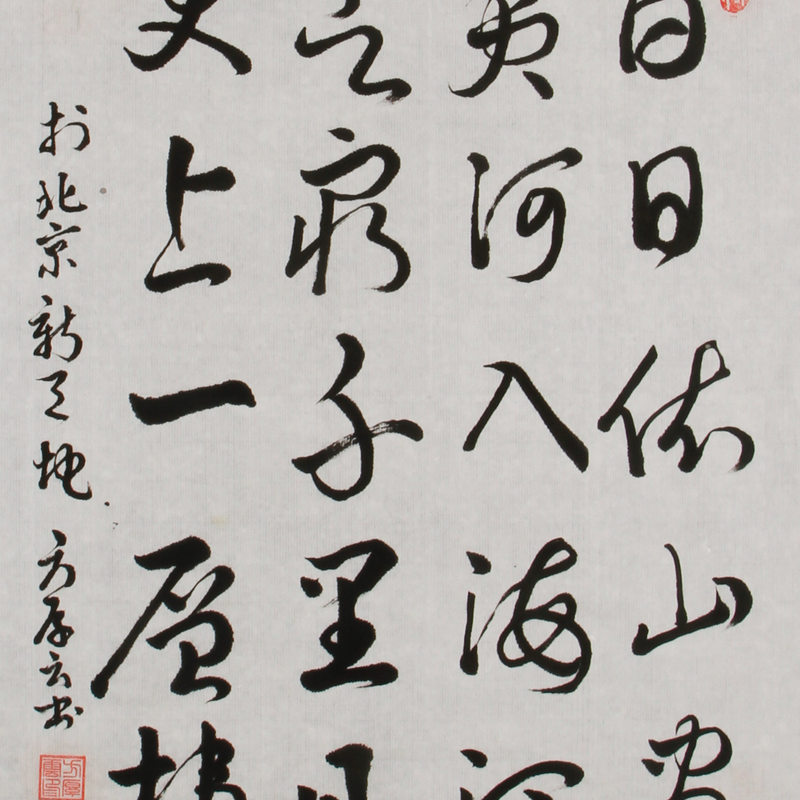 白日依山尽
黄河入海流
欲穷千里目
更上一层楼
於北京新天地 方厚云书